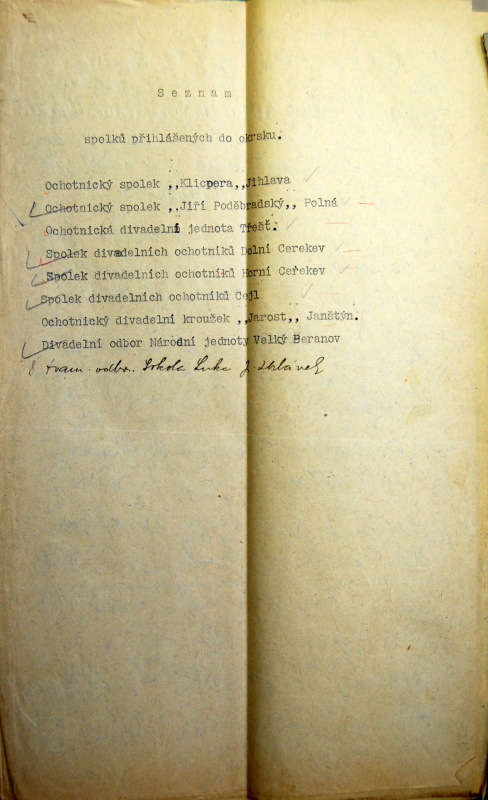 S e z n a m
spolků přihlášených do okrsku.
Ochotnický spolek ,,Klicpera,,Jihlava
Ochotnický spolek ,,Jiří Poděbradský,, Polná
Ochotnická divadelní jednota Třešť.
Spolek divadelních ochotníků Dolní Cerekev
Spolek divadelních ochotníků Horní Cerekev
Spolek divadelních ochotníků Cejl
Ochotnický divadelní kroužek ,,Jarost,, Janštýn.
Divadelní odbor Národní jednoty Velký Beranov
dram. odbor. Sokola Luka J.